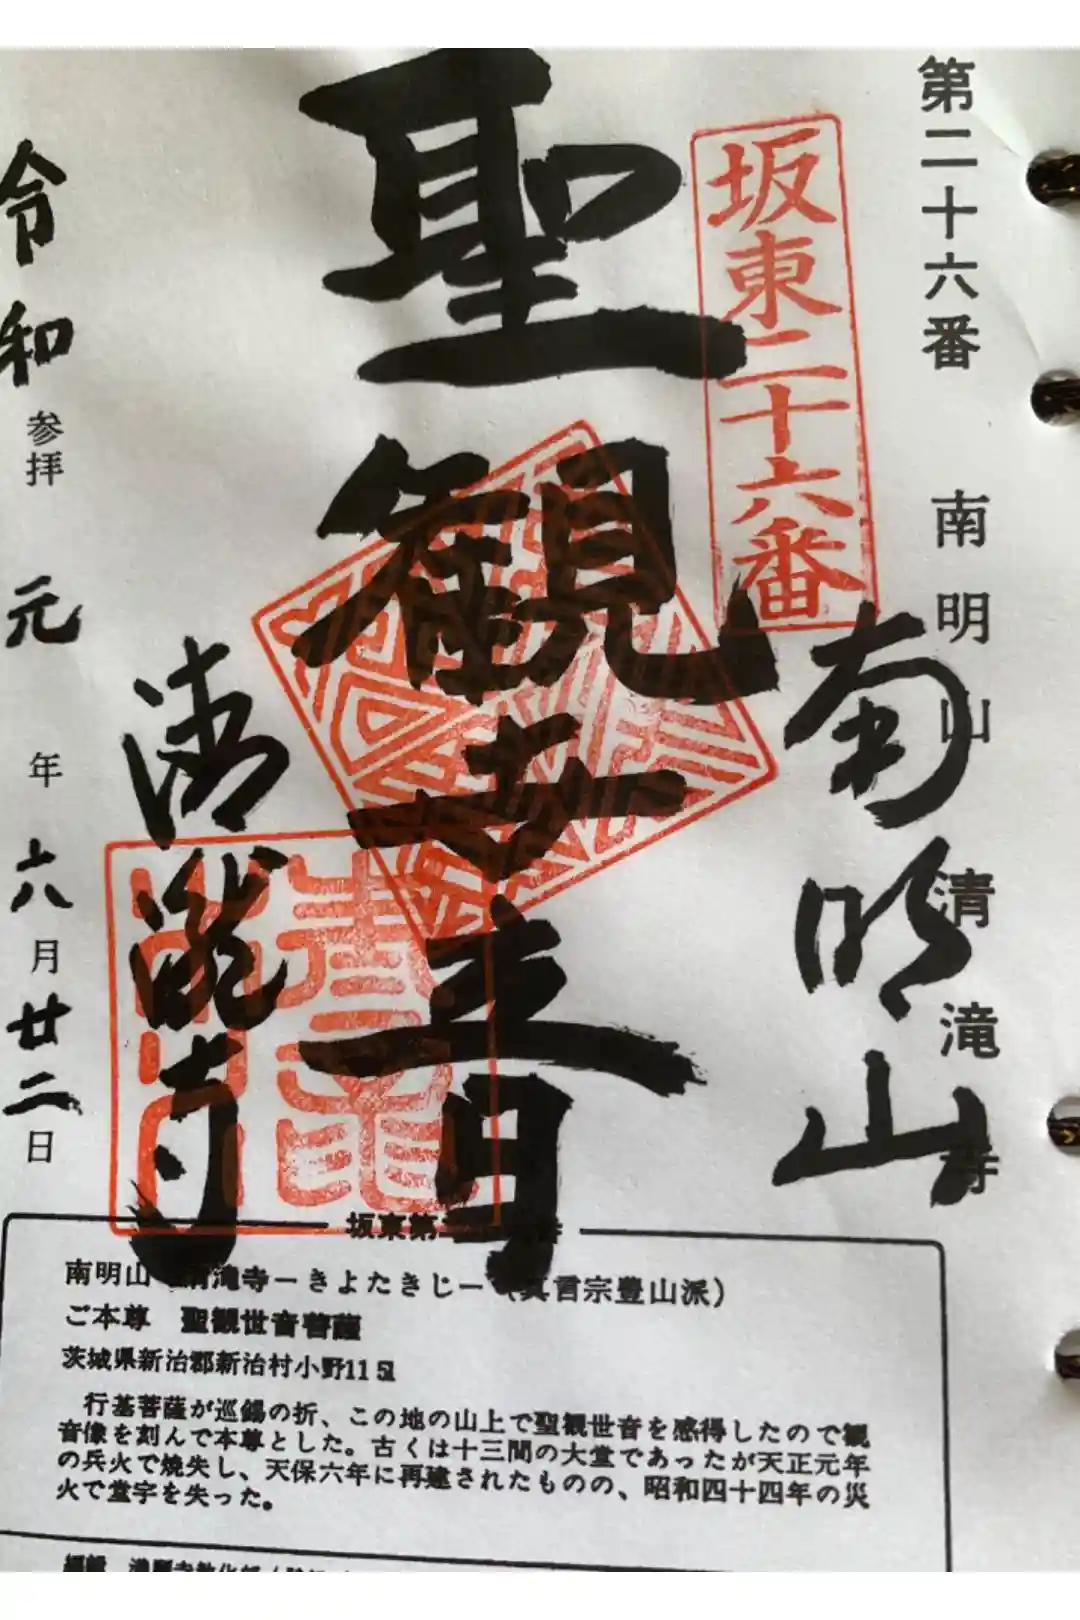 第二十六番 南明山 清滝寺
坂東二十六番
南明山
聖観世音
清瀧寺
令和元年六月廿二日
参拝
坂東第二
南明山 清滝寺ーきよたきじー(真言宗豊山派)
ご本尊 聖観世音菩薩
茨城県新治郡新治村小野11
行基菩薩が巡錫の折、この地の山上で聖観世音を感得したので観
音像を刻んで本尊とした。古くは十三間の大堂であったが天正元年
の兵火で焼失し、天保六年に再建されたものの、昭和四十四年の災
火で堂宇を失った。